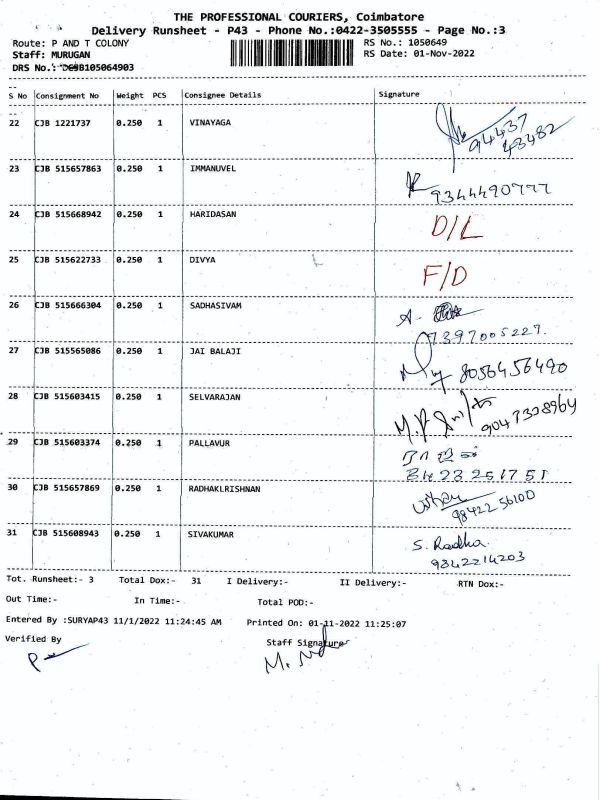 THE PROFESSIONAL COURIERS, Coimbatore
Delivery Runsheet - P43 - Phone No.:0422-3505555 - Page No.:3
Route: P AND T COLONY
RS No.: 1050649
Staff: MURUGAN
RS Date: 01-Nov-2022
DRS No.:
S No Consignment No Weight PCS Consignee Details Signature
22 CJB 1221737 0.250 1 VINAYAGA
94437
43482
23 CJB 515657863 0.250 1 IMMANUVEL
9344490777
24 CJB 515668942 0.250 1 HARIDASAN D/L
25 CJB 515622733 0.250 1 DIVYA F/D
26 CJB 515666304 0.250 1 SADHASIVAM A.
7397005227.
27 CJB 515565086 0.250 1 JAI BALAJI
8056456490
28 CJB 515603415 0.250 1 SELVARAJAN
9047328964
29 CJB 515603374 0.250 1 PALLAVUR
30 CJB 515657869 0.250 1 RADHAKLRISHNAN
98422 56100
31 CJB 515608943 0.250 1 SIVAKUMAR S. Radha
9842214203
Tot. Runsheet:- 3 Total Dox:- 31 I Delivery:- II Delivery:- RTN Dox:-
Out Time:- In Time:- Total POD:-
Entered By :SURYAP43 11/1/2022 11:24:45 AM Printed On: 01-11-2022 11:25:07
Verified By Staff Signature